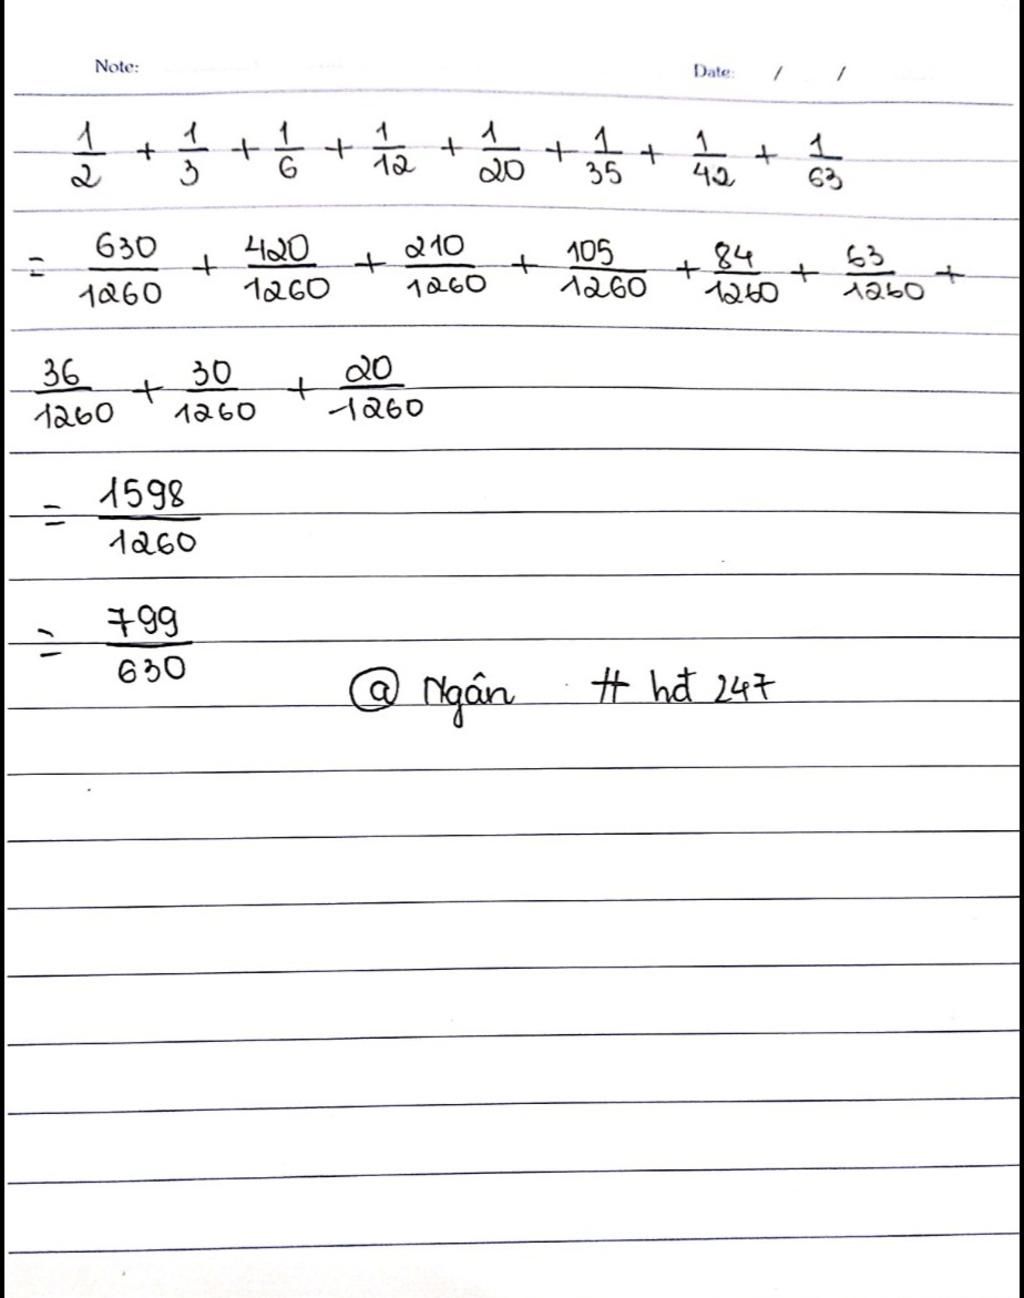 Note: Date: / /
1/2 + 1/3 + 1/6 + 1/12 + 1/20 + 1/35 + 1/42 + 1/63
= 630/1260 + 420/1260 + 210/1260 + 105/1260 + 84/1260 + 63/1260 +
36/1260 + 30/1260 + 20/1260
= 1598/1260
= 799/630
@ Ngân # hđ 247